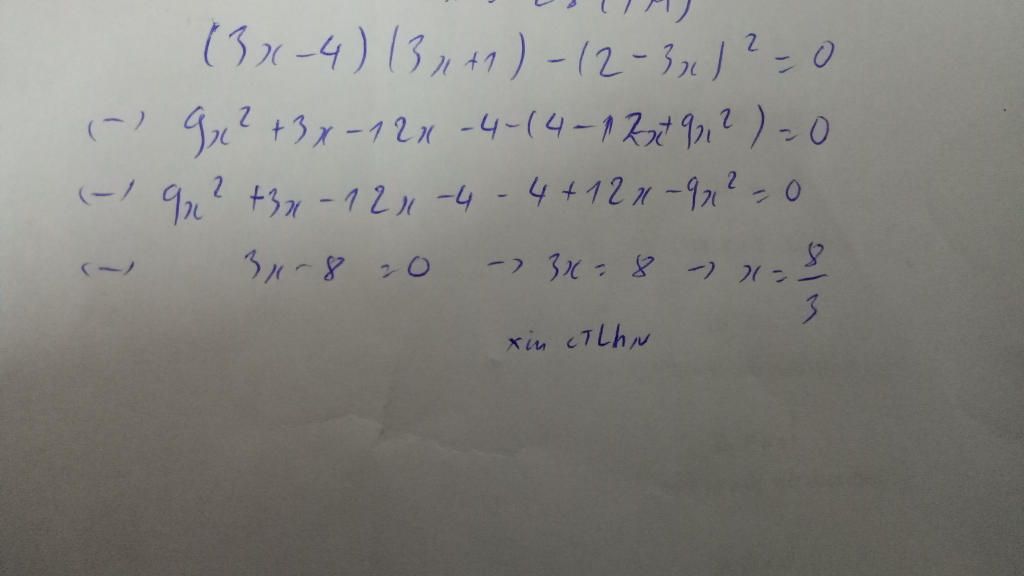 (3x-4)(3x+1)-(2-3x)²=0
(-) 9x²+3x-12x-4-(4-12x+9x²)=0
(-) 9x²+3x-12x-4-4+12x-9x²=0
(-) 3x-8=0 -> 3x=8 -> x=8/3
xin CTLhN